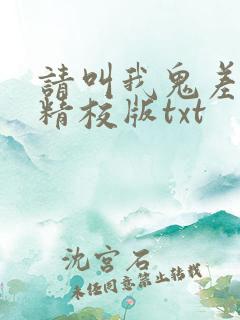 請叫我鬼差
精校版txt
沈宮石
未经同意禁止转载